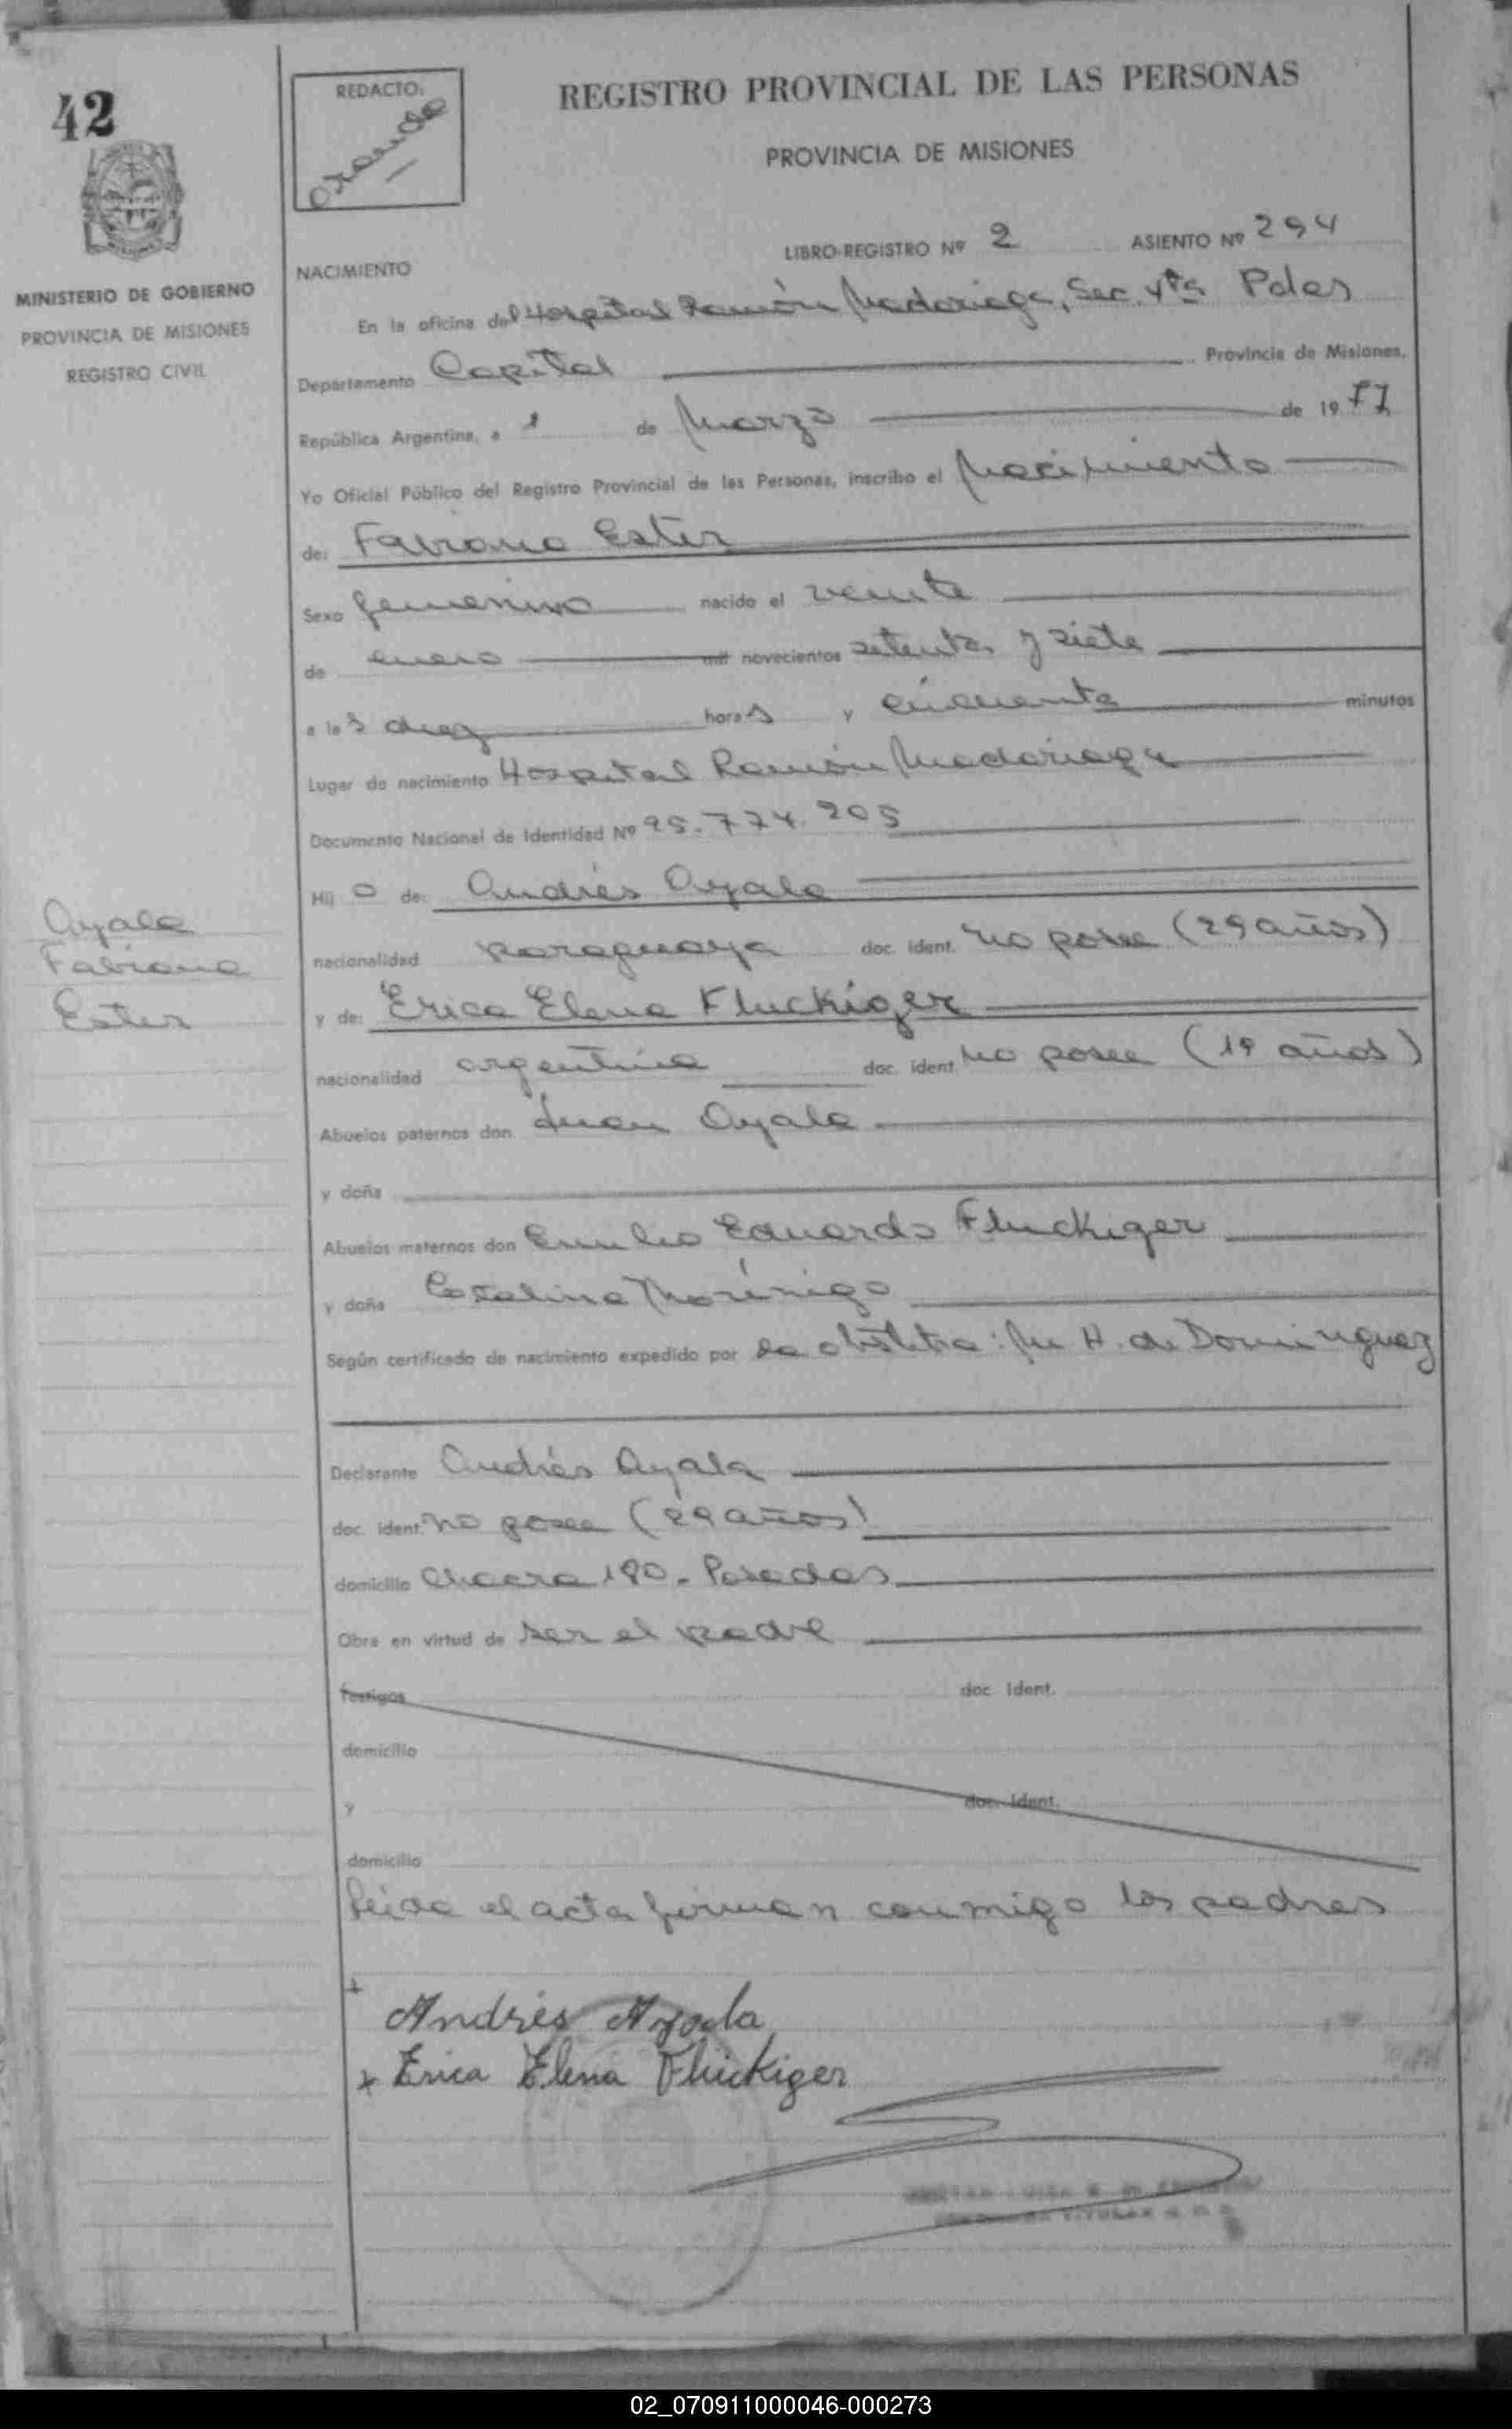 42
REDACTO:
REGISTRO PROVINCIAL DE LAS PERSONAS
PROVINCIA DE MISIONES
LIBRO-REGISTRO Nº 2 ASIENTO Nº 294
NACIMIENTO
MINISTERIO DE GOBIERNO
PROVINCIA DE MISIONES
REGISTRO CIVIL
En la oficina del Hospital Ramón Madariaga, Sec. 4ta Pdas
Departamento Capital Provincia de Misiones,
República Argentina, a 1 de Marzo de 1977
Yo Oficial Público del Registro Provincial de las Personas, inscribo el Nacimiento
de: Fabiana Ester
Sexo femenino nacido el veinte
de enero mil novecientos setenta y siete
a las diez horas y cincuenta minutos
Lugar de nacimiento Hospital Ramón Madariaga
Documento Nacional de Identidad Nº 25.774.205
Hij a de: Andrés Ayala
Ayala
Fabiana
Ester
nacionalidad paraguaya doc. ident. no posee (29 años)
y de: Erica Elena Fluckiger
nacionalidad argentina doc. ident. no posee (19 años)
Abuelos paternos don Juan Ayala
y doña
Abuelos maternos don Emilio Eduardo Fluckiger
y doña Catalina Morínigo
Según certificado de nacimiento expedido por la obstetra: M. H. de Dominguez
Declarante Andrés Ayala
doc. ident. no posee (29 años)
domicilio Chacra 190 - Posadas
Obra en virtud de ser el padre
Testigos doc. Ident.
domicilio
y doc. Ident.
domicilio
Leida el acta firman conmigo los padres
+ Andrés Ayala
x Erica Elena Fluckiger
02_070911000046-000273